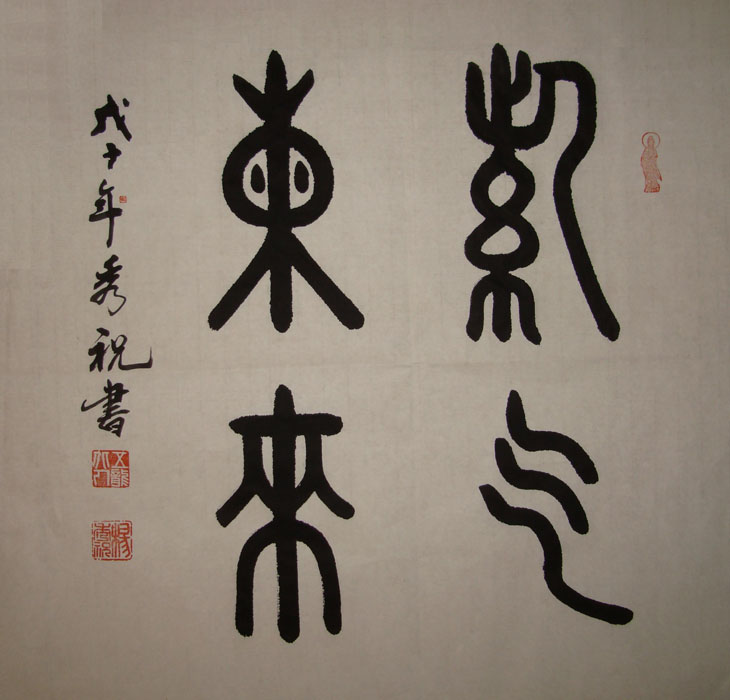 紫气
東來
戊子年秀祝書